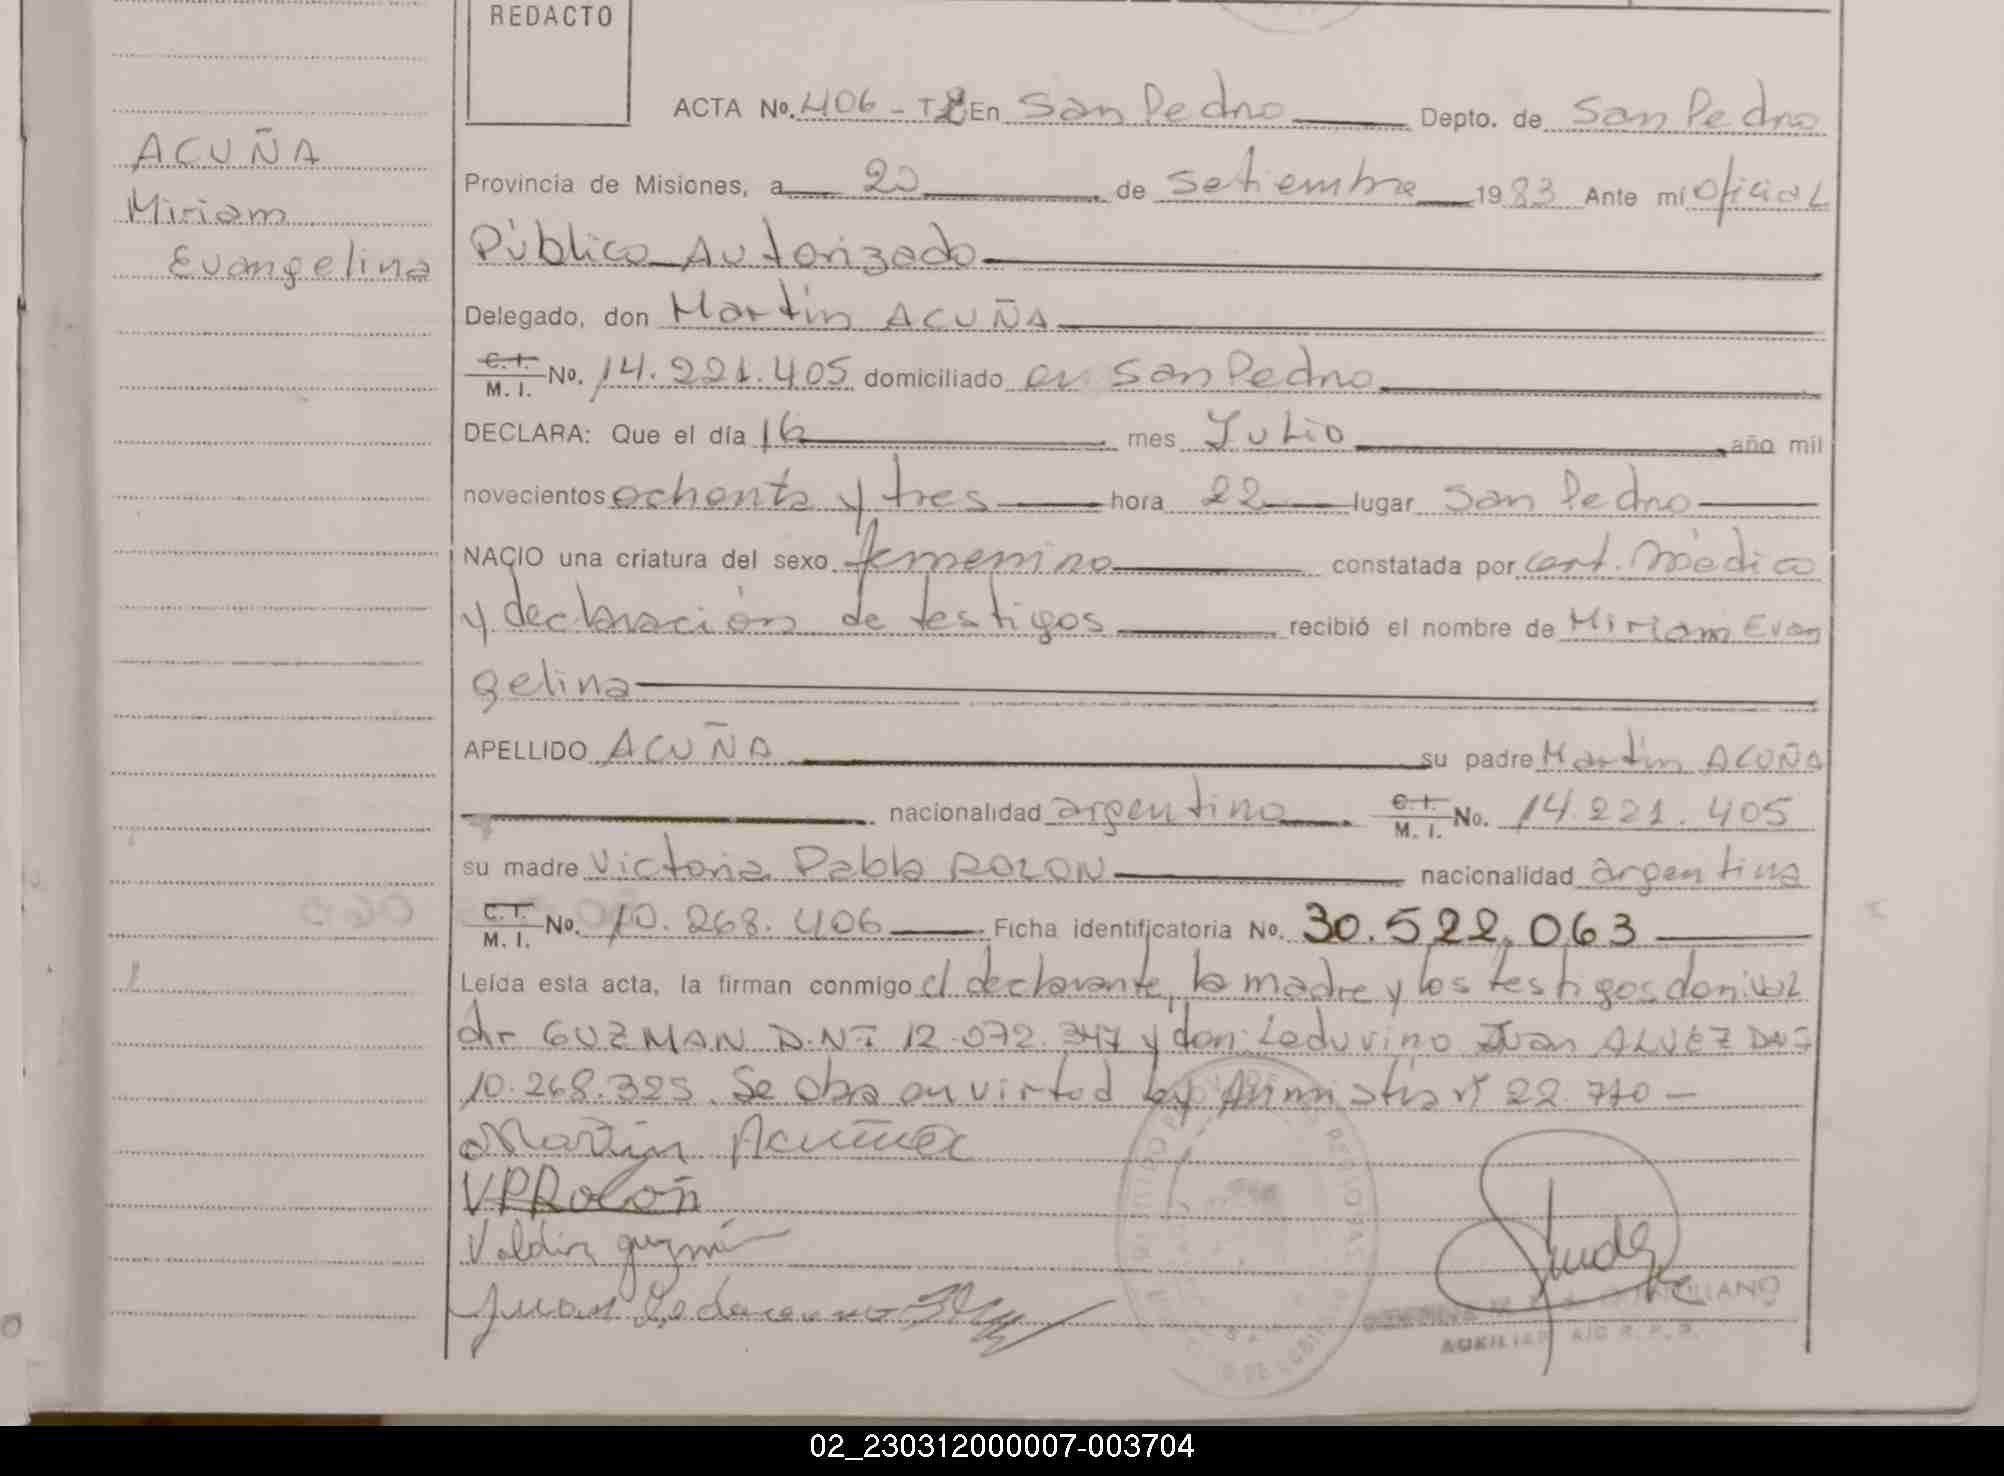 REDACTO
ACTA No. 406 - T2 En San Pedro Depto. de San Pedro
ACUÑA
Miriam
Evangelina
Provincia de Misiones, a 20 de setiembre 1983 Ante mí Oficial
Público Autorizado
Delegado, don Martín ACUÑA
C.I. M. I. No. 14.221.405 domiciliado en San Pedro
DECLARA: Que el día 16 mes Julio año mil
novecientos ochenta y tres hora 22 lugar San Pedro
NACIO una criatura del sexo femenino constatada por cert. médico
y declaración de testigos recibió el nombre de Miriam Evan
gelina
APELLIDO ACUÑA su padre Martín ACUÑA
nacionalidad argentino C.I. M. I. No. 14.221.405
su madre Victoria Pabla ROLON nacionalidad argentina
C.I. M. I. No. 10.268.406 Ficha identificatoria No. 30.522.063
Leída esta acta, la firman conmigo el declarante, la madre y los testigos don Val
dir GUZMAN D.N.I 12.072.347 y don Leduvino Juan ALVEZ DNI
10.268.325. Se obra en virtud ley Amnistía nº 22.770 —
Martin Acuña
VPRoloñ
Valdir guzmán
Juan
AUXILIAR A/C R. P. S.
02_230312000007-003704